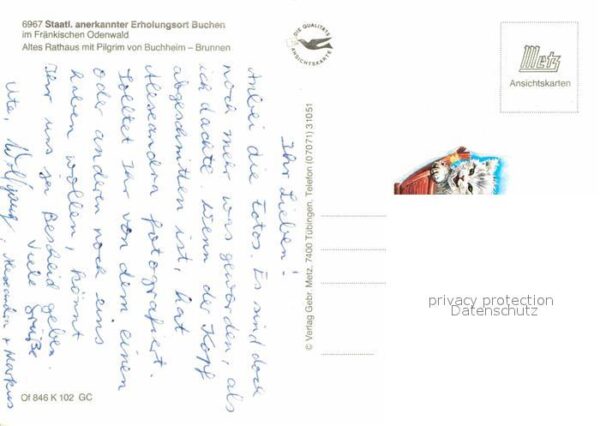 6967 Staatl. anerkannter Erholungsort Buchen
im Fränkischen Odenwald
Altes Rathaus mit Pilgrim von Buchheim – Brunnen
DIE QUALITÄTS
ANSICHTSKARTE
Metz
Ansichtskarten
Ihr Lieben!
Anbei die Fotos. Es sind doch
noch mehr was geworden, als
ich dachte. Wenn der Kopf
abgeschnitten ist, hat
Alexandra fotografiert.
Solltet Ihr von dem einen
oder andern noch eins
haben wollen, könnt
Ihr uns ja Bescheid geben.
Viele Grüße
Ute, Wolfgang, Alexandra + Markus
© Verlag Gebr. Metz, 7400 Tübingen, Telefon (07071) 31051
privacy protection
Datenschutz
Of 846 K 102 GC